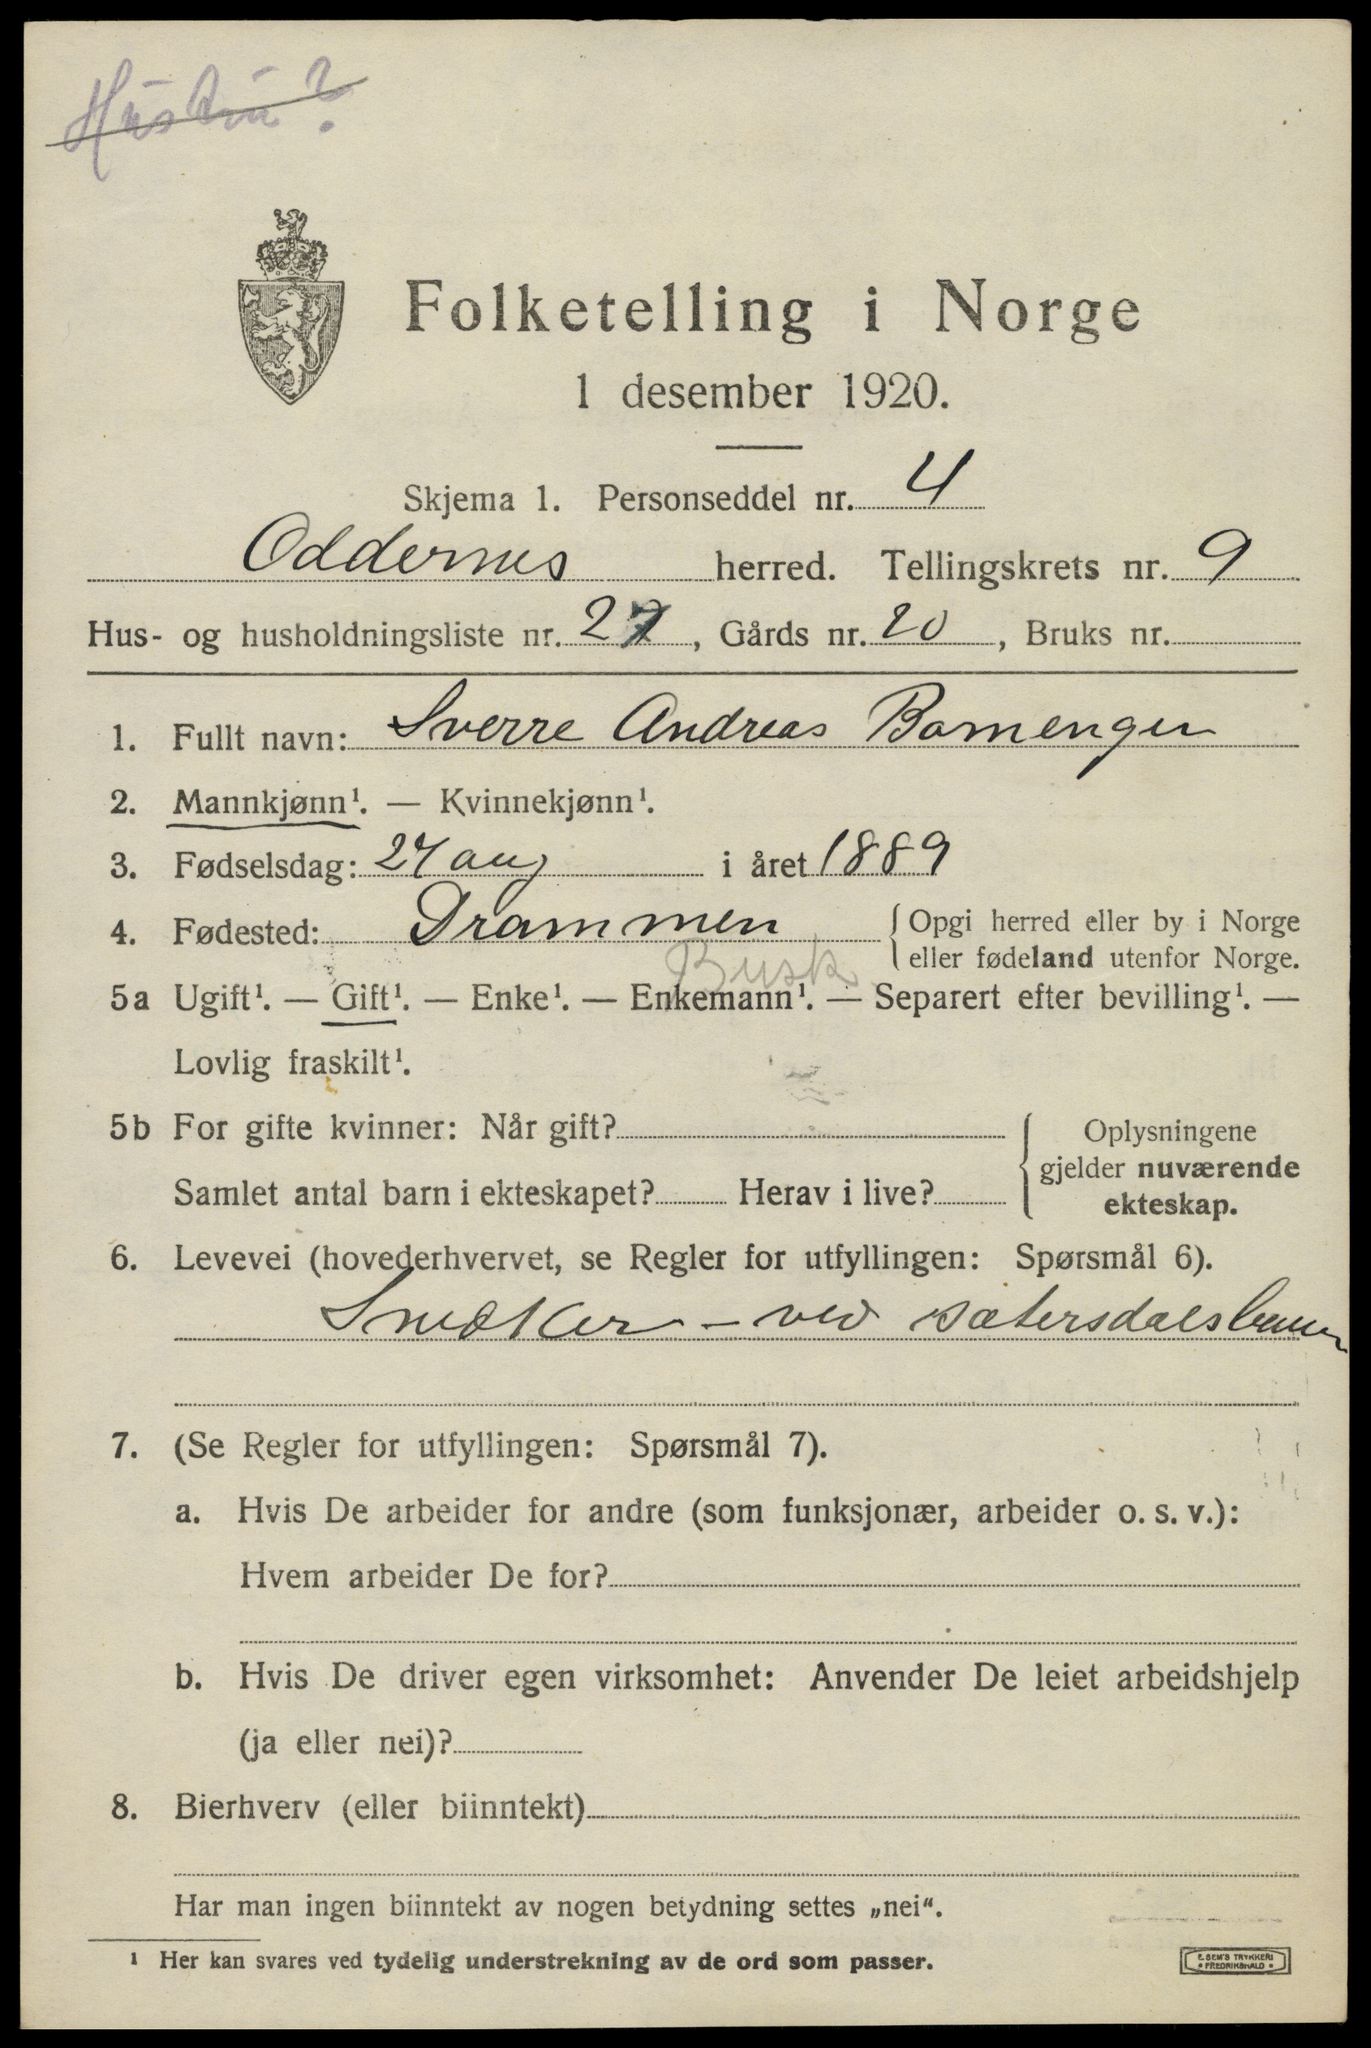 Hustru?
Folketelling i Norge
1 desember 1920.
Skjema 1. Personseddel nr. 4
Oddernes herred. Tellingskrets nr. 9
Hus- og husholdningsliste nr. 27, Gårds nr. 20, Bruks nr.
1. Fullt navn: Sverre Andreas Bomengen
2. Mannkjønn¹. — Kvinnekjønn¹.
3. Fødselsdag: 27 aug i året 1889
4. Fødested: Drammen { Opgi herred eller by i Norge
eller fødeland utenfor Norge.
Busk
5a Ugift¹. — Gift¹. — Enke¹. — Enkemann¹. — Separert efter bevilling¹. —
Lovlig fraskilt¹.
5b For gifte kvinner: Når gift? { Oplysningene
gjelder nuværende
Samlet antal barn i ekteskapet? Herav i live?
ekteskap.
6. Levevei (hovederhvervet, se Regler for utfyllingen: Spørsmål 6).
Snedker - ved sætersdalsbanen
7. (Se Regler for utfyllingen: Spørsmål 7).
a. Hvis De arbeider for andre (som funksjonær, arbeider o. s. v.):
Hvem arbeider De for?
b. Hvis De driver egen virksomhet: Anvender De leiet arbeidshjelp
(ja eller nei)?
8. Bierhverv (eller biinntekt)
Har man ingen biinntekt av nogen betydning settes „nei“.
¹ Her kan svares ved tydelig understrekning av de ord som passer.
E. SEM'S TRYKKERI
• FREDRIKSHALD •